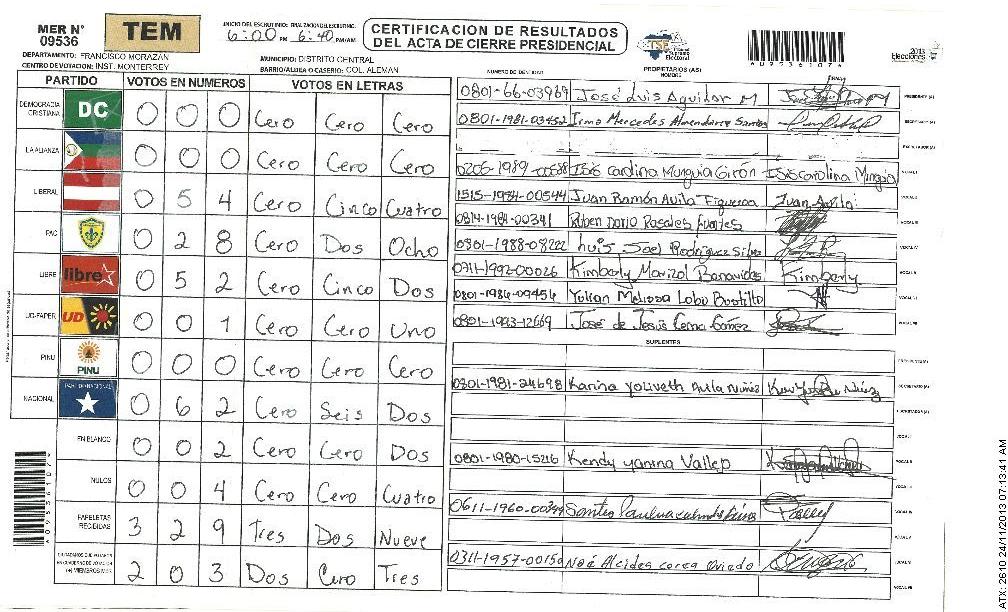 MER N° 09536
TEM
INICIO DEL ESCRUTINIO: FINALIZACION DEL ESCRUTINIO:
6:00 PM 6:40 PM/AM.
CERTIFICACION DE RESULTADOS DEL ACTA DE CIERRE PRESIDENCIAL
TSE Tribunal Supremo Electoral
Elecciones 2013
DEPARTAMENTO: FRANCISCO MORAZÁN
MUNICIPIO: DISTRITO CENTRAL
CENTRO DE VOTACION: INST. MONTERREY
BARRIO/ALDEA O CASERIO: COL. ALEMAN
PARTIDO VOTOS EN NUMEROS VOTOS EN LETRAS
DEMOCRACIA CRISTIANA DC 0 0 0 Cero Cero Cero
LA ALIANZA 0 0 0 Cero Cero Cero
LIBERAL 0 5 4 Cero Cinco Cuatro
PAC 0 2 8 Cero Dos Ocho
LIBRE libre 0 5 2 Cero Cinco Dos
UD-FAPER UD 0 0 1 Cero Cero Uno
PINU PINU 0 0 0 Cero Cero Cero
NACIONAL PARTIDO NACIONAL 0 6 2 Cero Seis Dos
EN BLANCO 0 0 2 Cero Cero Dos
NULOS 0 0 4 Cero Cero Cuatro
PAPELETAS RECIBIDAS 3 2 9 Tres Dos Nueve
2 0 3 Dos Cero Tres
NUMERO DE IDENTIDAD PROPIETARIOS (AS) NOMBRE FIRMA
0801-66-03969 José Luis Aguilar M PRESIDENTE (A)
0801-1981-03452 Irma Mercedes Almendarez Santos SECRETARIO (A)
ESCRUTADOR (A)
Isis Carolina Murguia Girón Isis Carolina Murguia VOCAL I
1515-1984-00544 Juan Ramón Avila Figueroa Juan Avila VOCAL II
Ruben Dario Rosales VOCAL III
0801-1988-08222 Luis Joel Rodriguez Silva VOCAL IV
0711-1992-00026 Kimberly Marizol Banavides Kimberly VOCAL V
0801-1986-09456 Yulian Melissa Lobo Bustillo VOCAL VI
0801-1993-12669 José de Jesús Cerna Gómez VOCAL VII
SUPLENTES
PRESIDENTE (A)
0801-1981-24698 Karina Yoliveth Avila Nuñez SECRETARIO (A)
ESCRUTADOR (A)
VOCAL I
0801-1980-15216 Kendy Yanina Vallejo VOCAL II
VOCAL III
VOCAL IV
VOCAL V
0311-1957-00150 Noé Alcides Correa Oviedo VOCAL VI
VOCAL VII
A09536107A
ATX: 2610 24/11/2013 07:13:41 AM